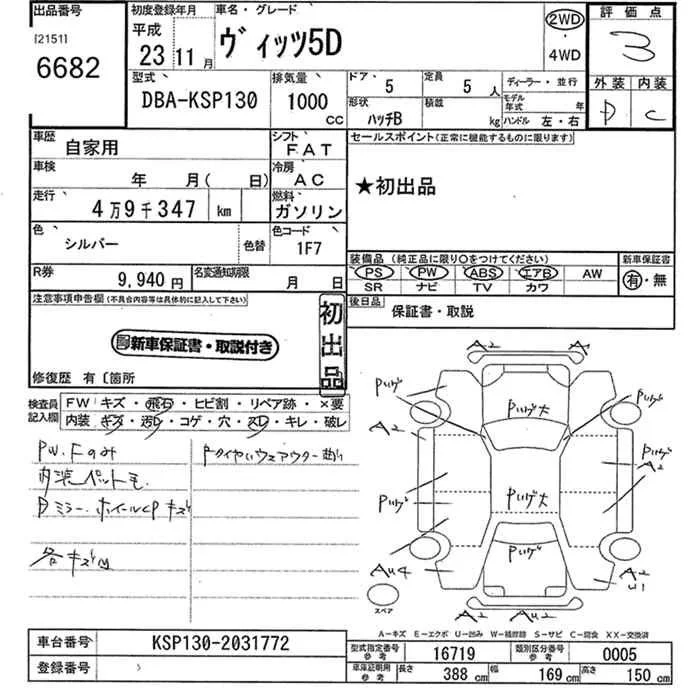 出品番号
[2151]
6682
初度登録年月
平成
23年 11月
車名・グレード
ヴィッツ5D
2WD
4WD
評価点
3
外装 内装
D C
型式
DBA-KSP130
排気量
1000 cc
ドア
5
定員
5 人
形状
ハッチB
積載
kg
ディーラー・並行
モデル年式 年
ハンドル 左・右
車歴
自家用
シフト
FAT
車検
年 月( 日)
冷房
AC
走行
4万9千347 km
燃料
ガソリン
色
シルバー
色替
色コード
1F7
R券
9,940円
名変通知期限
月 日
セールスポイント(正常に機能するものに限ります)
★初出品
装備品(純正品に限り○をつけてください)
新車保証書
PS PW ABS エアB AW
SR ナビ TV カワ
有・無
後日品
保証書・取説
注意事項申告欄(不具合内容等は具体的に記入して下さい)
新車保証書・取説付き
初出品
修復歴 有〔箇所
検査員記入欄
FW キズ・飛石・ヒビ割・リペア跡・×要
内装 キズ・汚レ・コゲ・穴・スレ・キレ・破レ
PW.Fのみ
内装ペット毛.
Dミラー.ホイールCPキズ
各キズ凹
A2
A2
Pいげ
Pいげ大
Pいげ
A2
Pいげ
A2
Pいげ
Pいげ大
Pいげ
AU4
A2
U1
スペア
A2
AU2
A-キズ E-エクボ U-凹み W-補修跡 S-サビ C-腐食 XX-交換済
車台番号
KSP130-2031772
登録番号
型式指定番号 参考
16719
類別区分番号 参考
0005
車庫証明用 参考
長さ 388 cm
幅 169 cm
高さ 150 cm